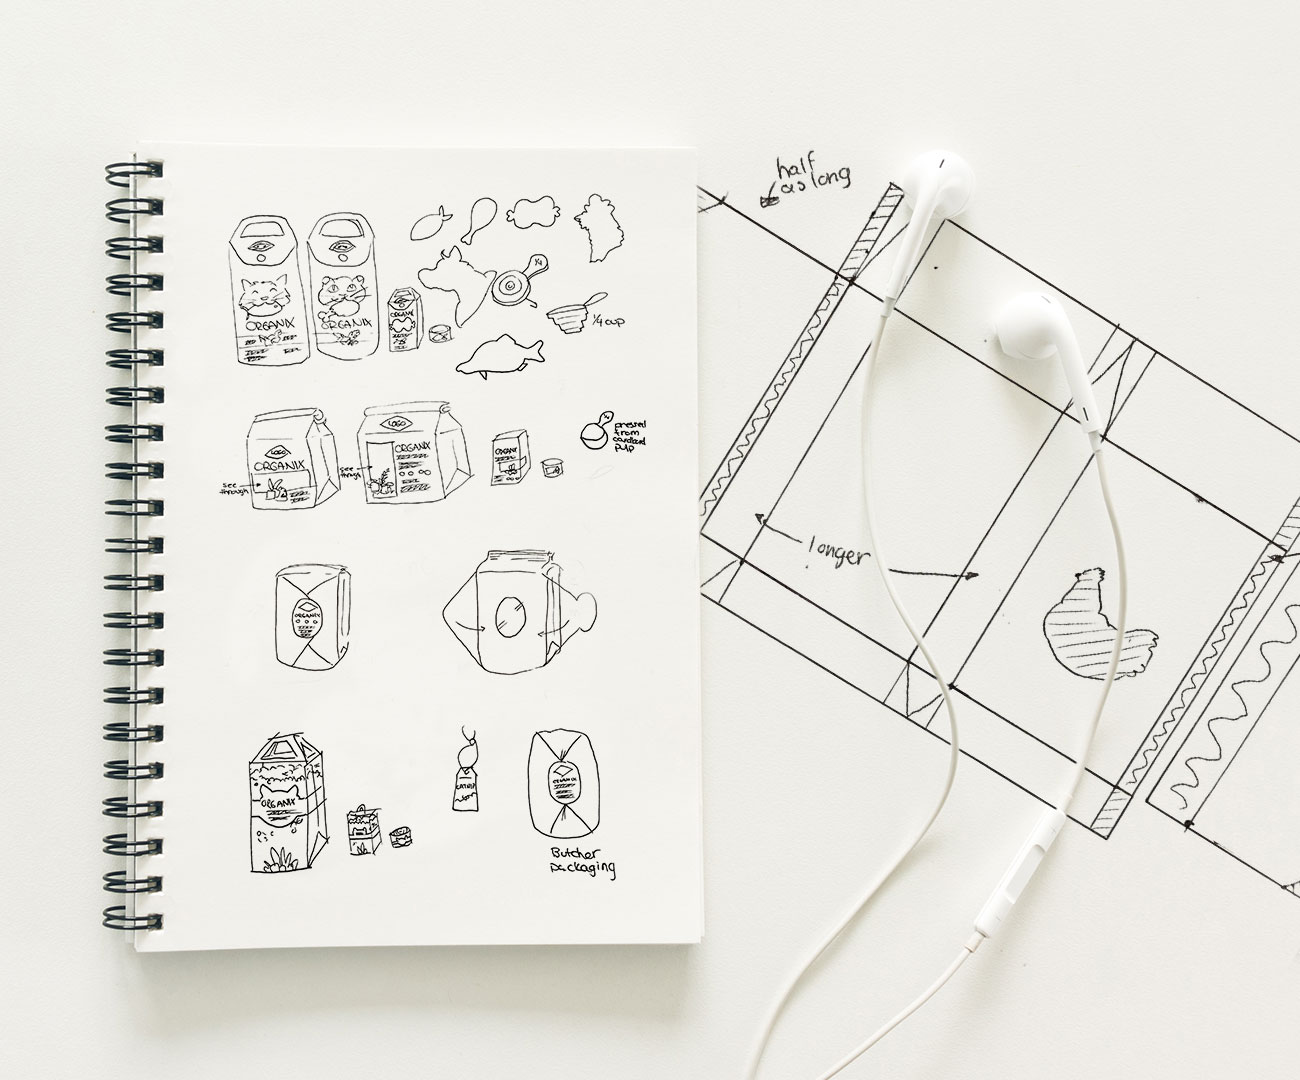 ORGANIX
ORGANIX
ORGANIX
1/4
1/4 cup
LOGO
ORGANIX
see
through
LOGO
ORGANIX
see
through
ORGANIX
1/4
pressed
from
cardboard
pulp
ORGANIX
ORGANIX
CATNIP
ORGANIX
Butcher
packaging
half
as long
longer